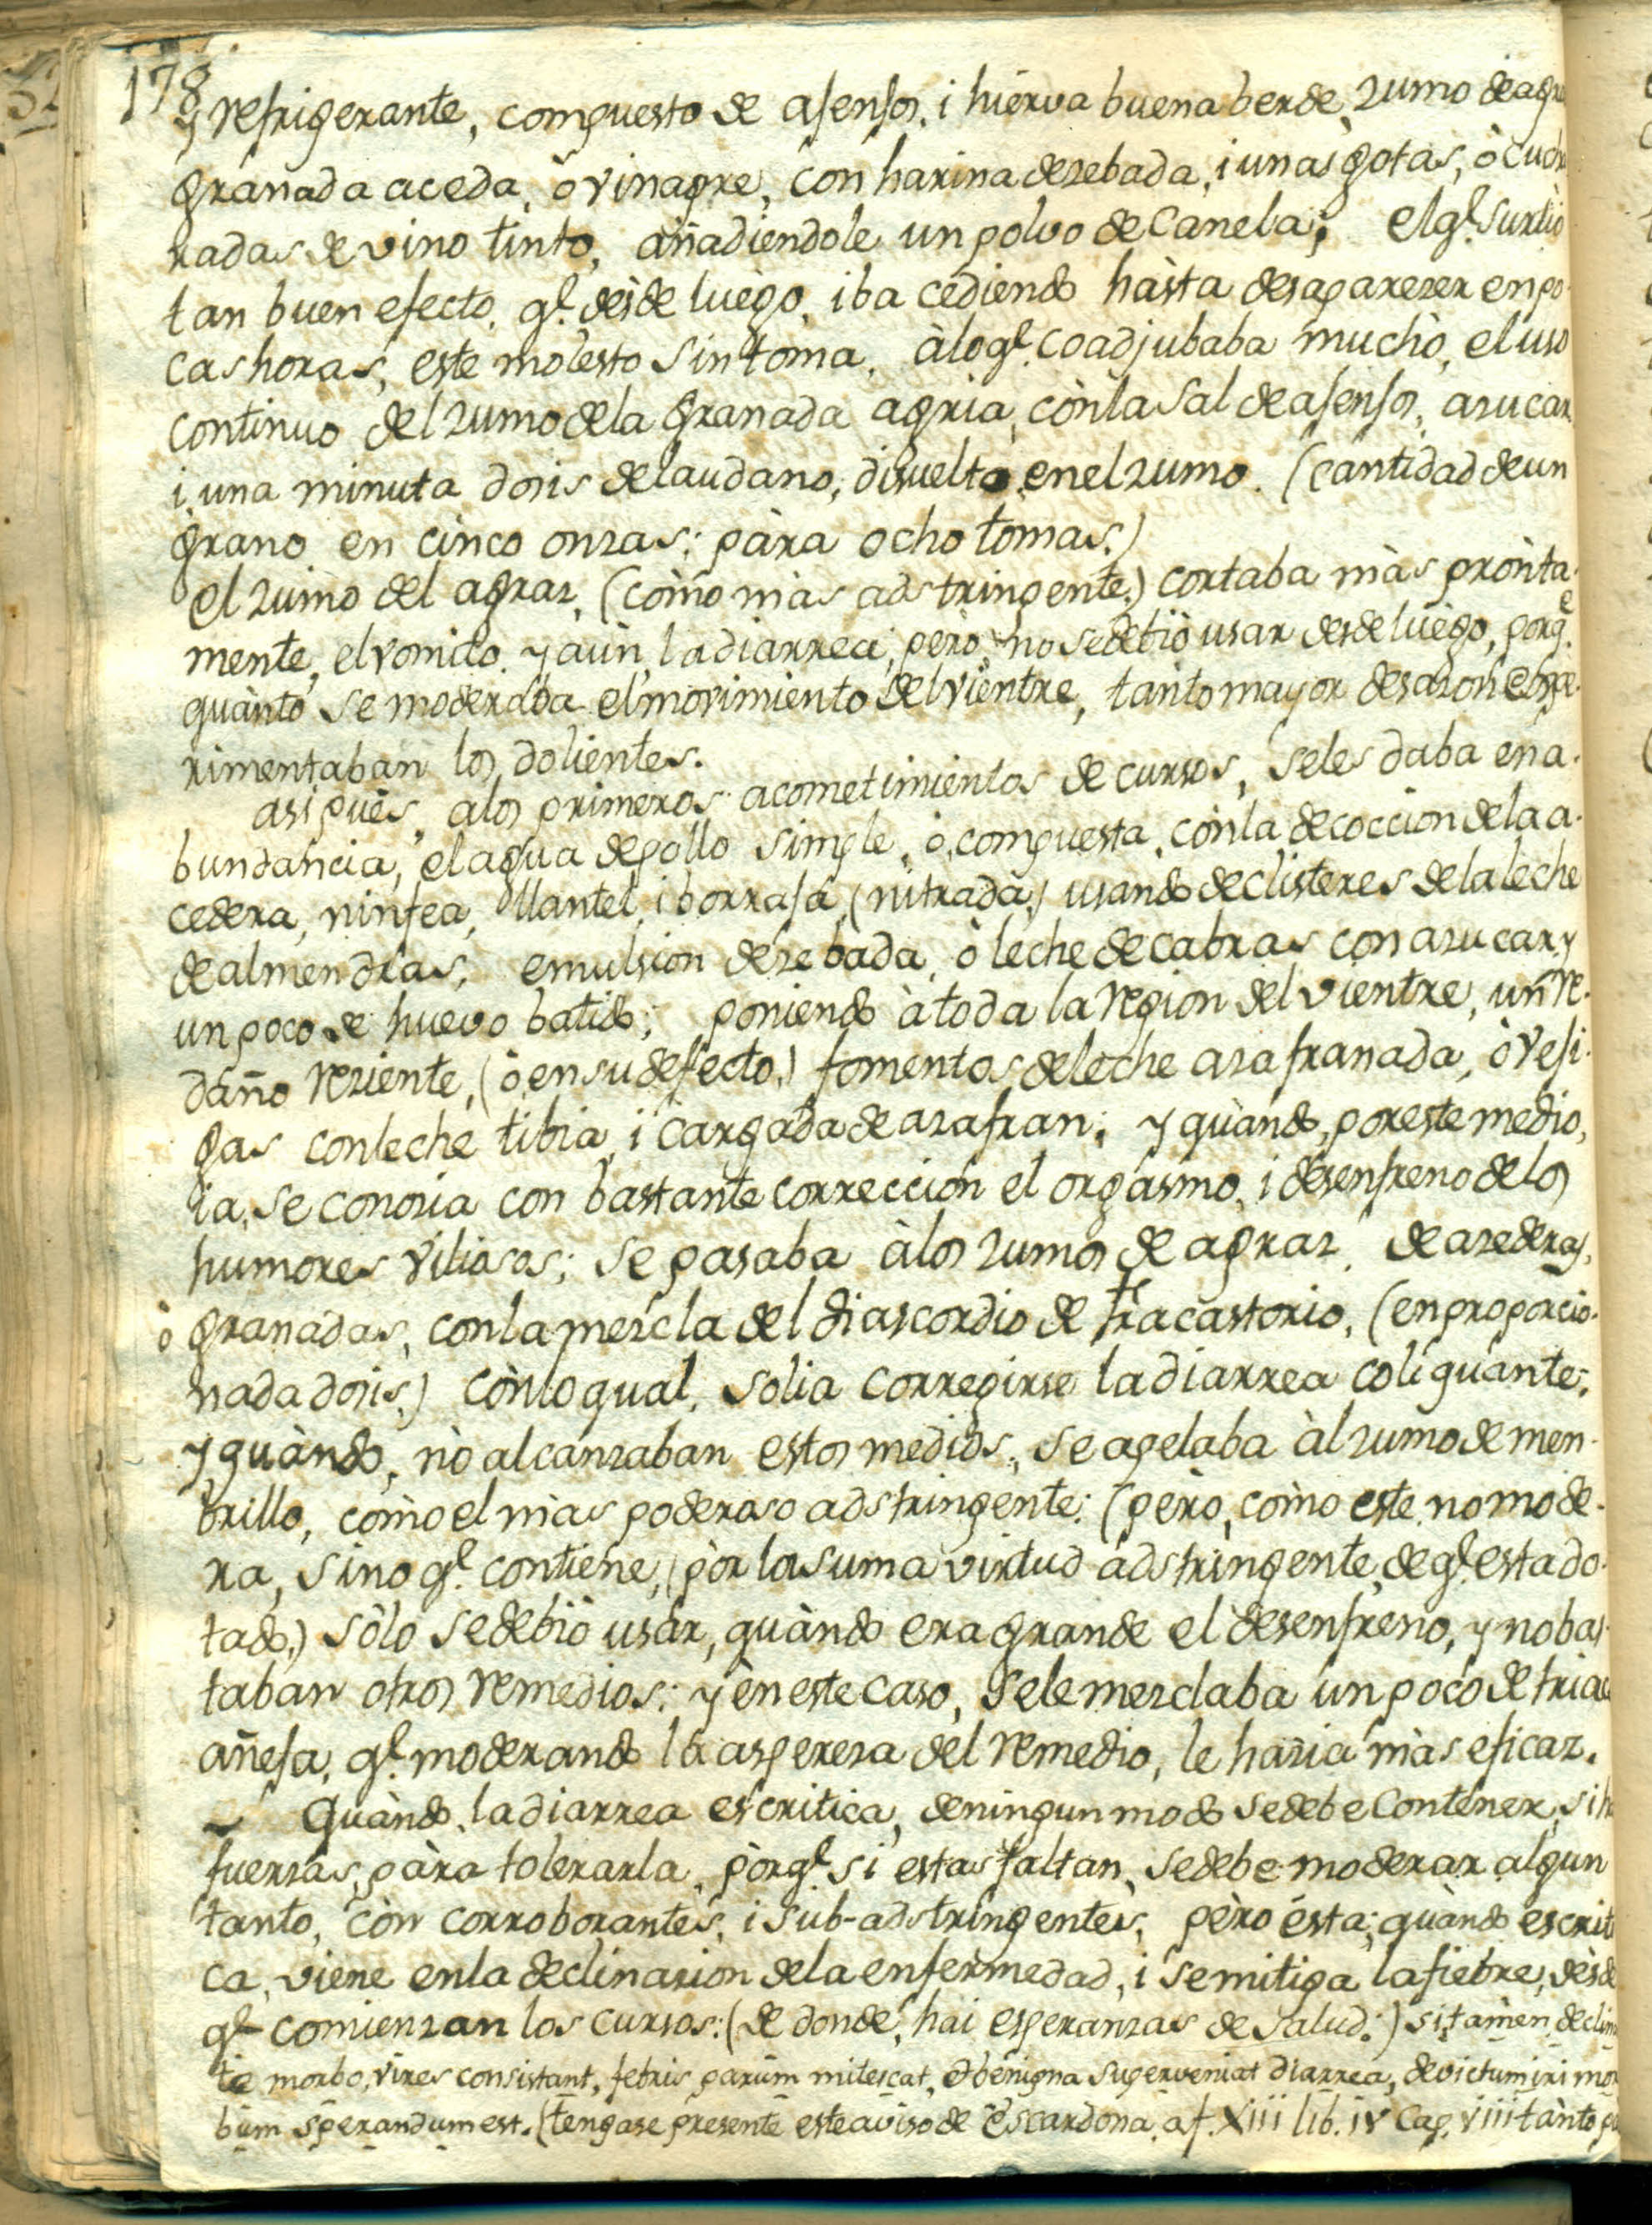 178
y refrigerante, compuesto de asensos, i hierva buena berde, zumo de agra
granada aceda, ò vinagre, con harina de zebada, i unas gotas, ò cucha
radas de vino tinto, añadiendole un polvo de Canela; el ql. surtiò
tan buen efecto, ql. dèsde luègo, iba cediendo hàsta desaparezer en po-
cas horas, este molesto sintoma, à lo ql. coadjubaba muchò, el uso
continuo del zumo de la granada agria, còn la sal de asensos, azucar
i una minuta dosis de laudano, disuelto en el zumo. (cantidad de un
grano en cinco onzas: pàra ocho tomas.)
el zumo del agraz, (còmo màs adstringente,) cortaba màs prònta-
mente, el vomito, y aùn, la diarrea, però, no se debiò usar desde luègo, porqe.
quànto se moderaba el movimiento del vientre, tanto mayor desazòn espe-
rimentaban los dolientes.
asi pues, a los primeros acometimientos de cursos, se les daba en a-
bundancia, el agua de pollo simple, ò compuesta, còn la decoccion de la a-
cedera, ninfea, llantel, i borrasa, (nitrada,) usando de clisteres de la leche
de almendras, emulsion de zebada, ò leche de cabras con azucar, y
un poco de huevo batido; poniendo à toda la region del vientre, un re-
daño reziente, (ò en su defecto,) fomentos de leche azafranada, ò vesi-
gas con leche tibia, i cargada de azafran; y quàndo, por este medio,
ia, se conozia con bastante correccion el orgasmo, i desenfreno de los
humores viliosos; se pasaba à los zumos de agraz, de azederas,
ò granadas, con la mezcla del diascordio de fracastorio, (en proporcio-
nada dosis,) còn lo qual, solia corregirse la diarrea coliquante;
y quàndo, nò alcanzaban estos medios, se apelaba àl zumo de mem-
brillo, còmo el màs poderoso adstringente: (però, còmo este no mode-
ra, sino ql. contiene, (pòr la suma virtud adstringente, de ql. esta do-
tado,) sòlo se debiò usar, quàndo era grande el desenfreno, y no bas-
taban otros remedios; y èn este caso, se le mezclaba un poco de triaca
añesa, ql. moderando la aspereza del remedio, le hazia màs eficaz.
~ Quàndo, la diarrea es critica, de ningun modo se debe contener, si ha
fuerzas, pàra tolerarla, pòrql. si estas faltan, se debe moderar algun
tanto, còn corroborantes, i sub-adstringentes, però ésta; quàndo es criti
ca, viene en la declinazion de la enfermedad, i se mitiga la fiebre, dèsde
ql. comienzan los cursos: (de donde, hai esperanzas de salud:) si tamen, declina
te morbo, vires consistant, febris parùm mitescat, & benigna superveniat diarrea, devictum iri mor
bum sperandum est. (tengase presente este aviso de Escardona, af. XIII lib. IV Cap. VIII tànto pa